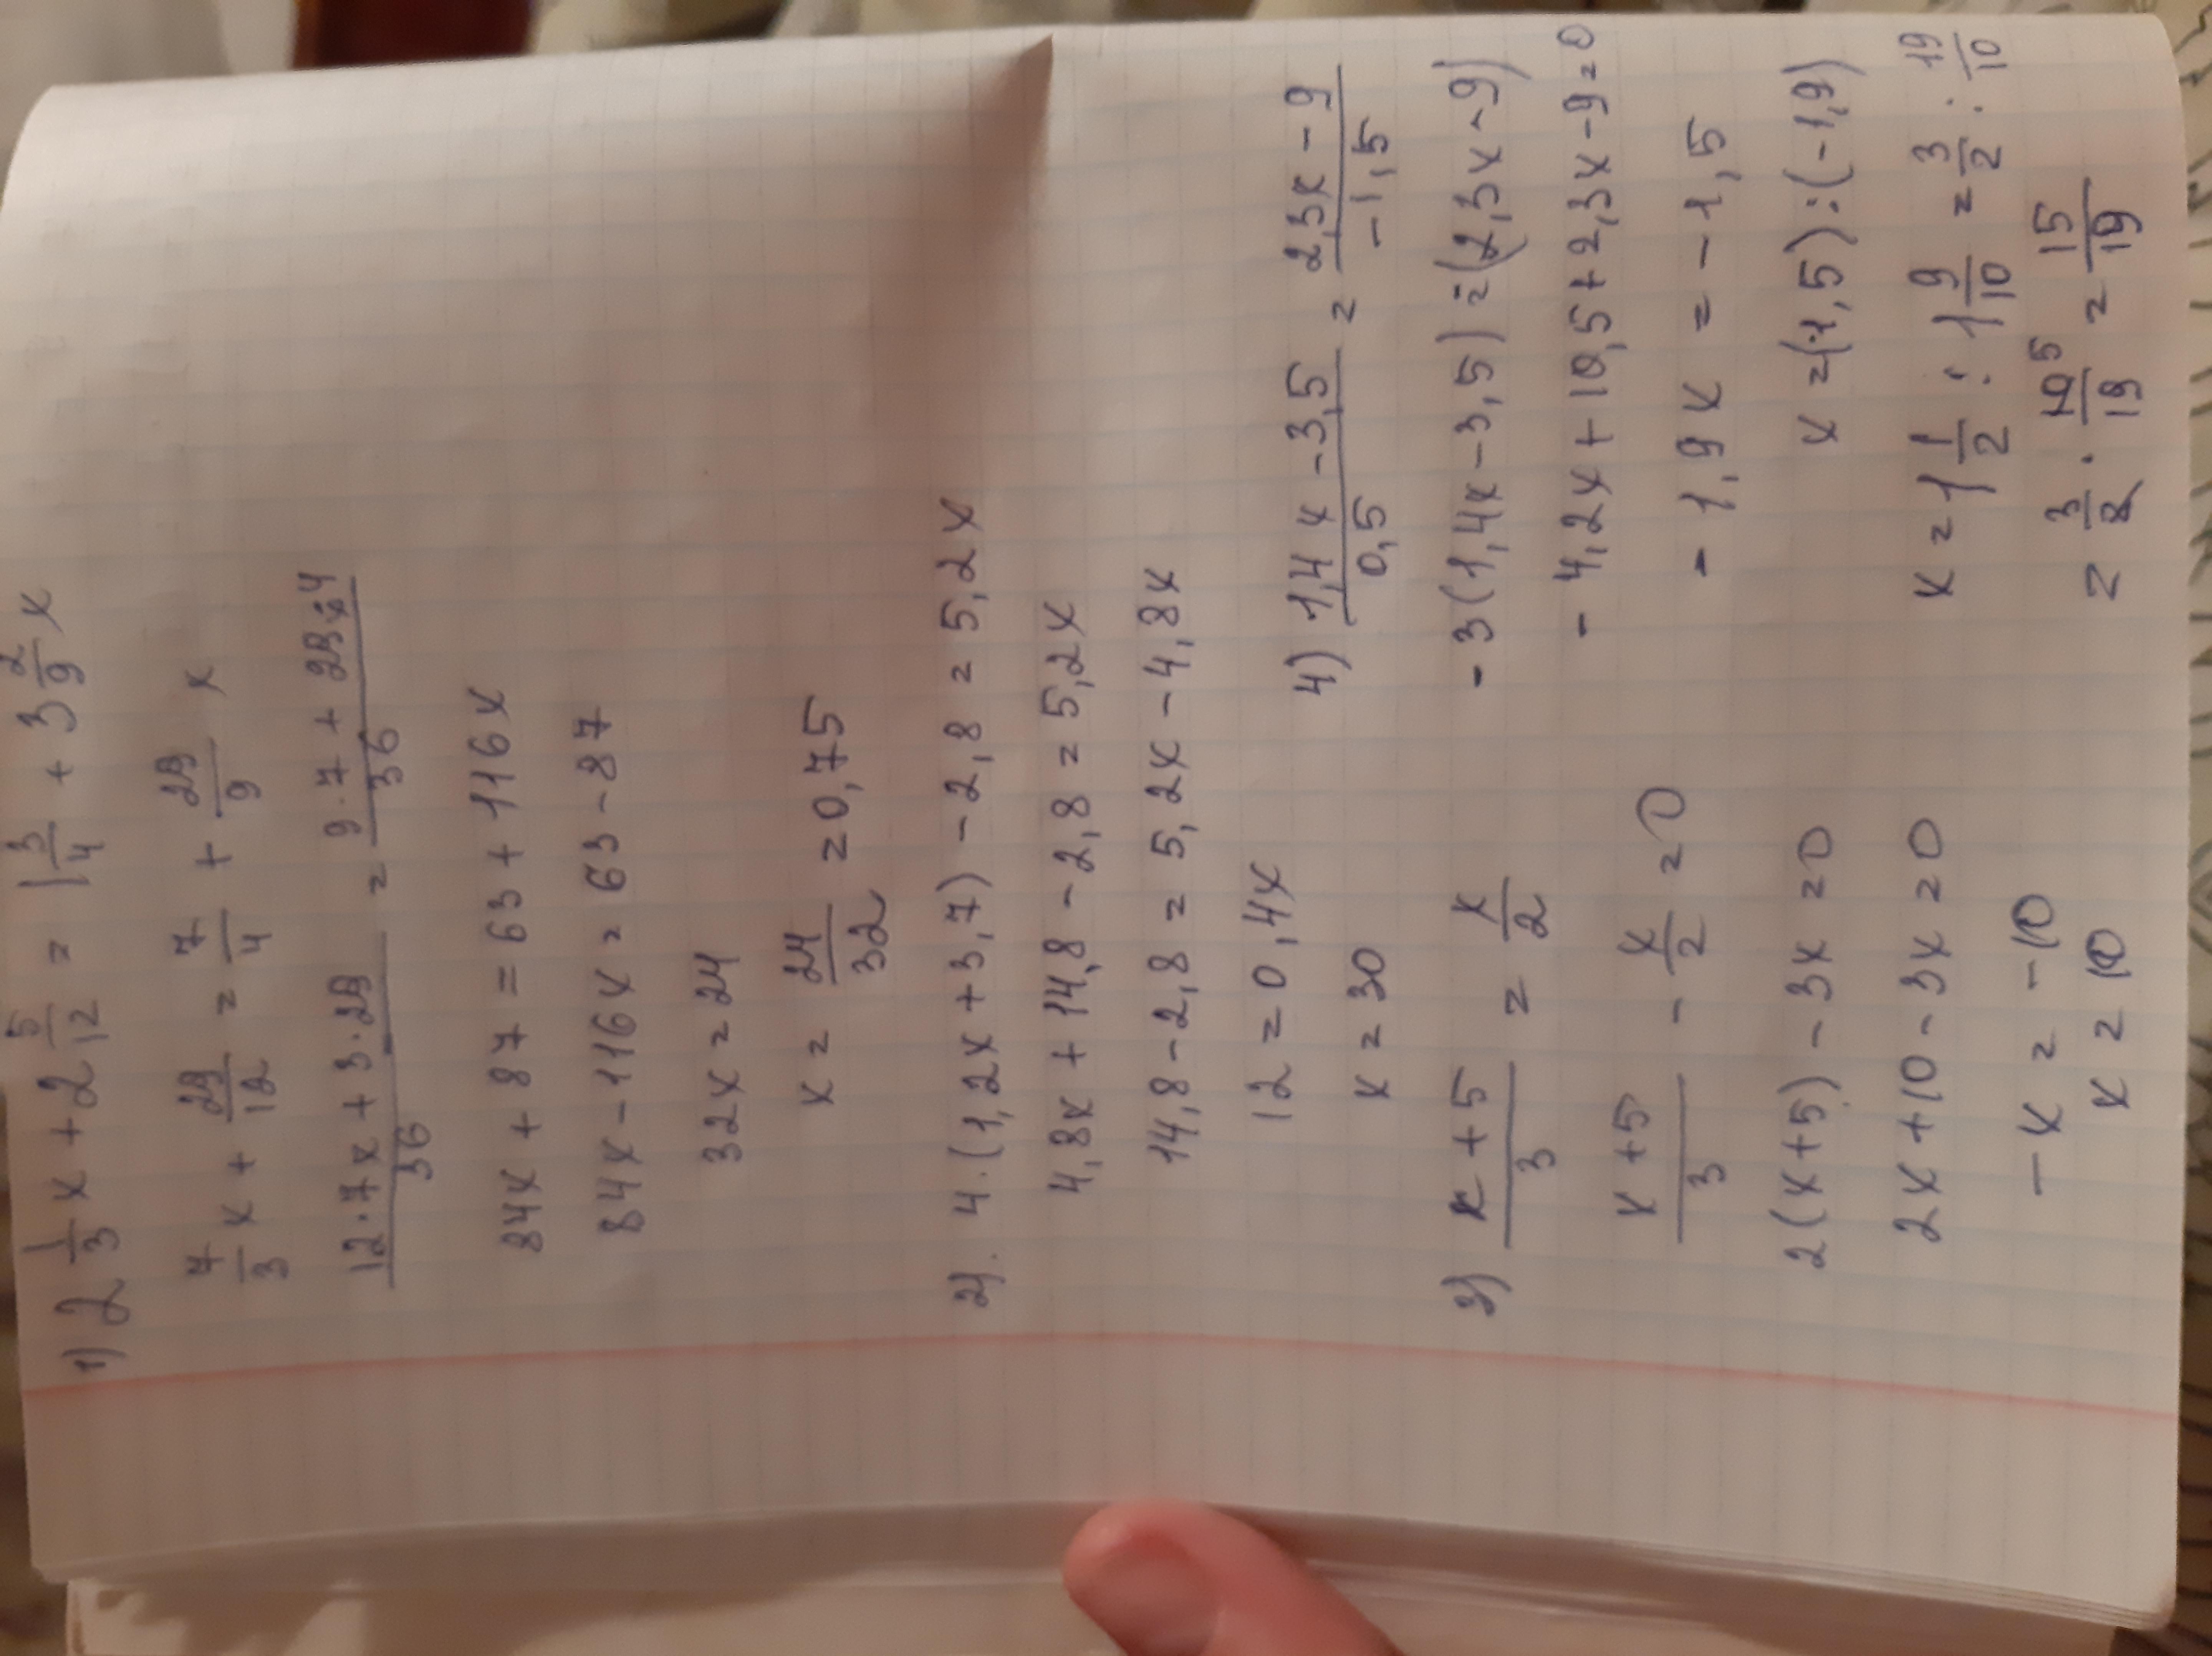 1) 2 1/3 x + 2 5/12 = 1 3/4 + 3 2/9 x
7/3 x + 29/12 = 7/4 + 29/9 x
(12·7x + 3·29)/36 = (9·7 + 29·4)/36
84x + 87 = 63 + 116x
84x - 116x = 63 - 87
32x = 24
x = 24/32 = 0,75
2). 4.(1,2x + 3,7) - 2,8 = 5,2x
4,8x + 14,8 - 2,8 = 5,2x
14,8 - 2,8 = 5,2x - 4,8x
12 = 0,4x
x = 30
3) (x + 5)/3 = x/2
(x + 5)/3 - x/2 = 0
2(x + 5) - 3x = 0
2x + 10 - 3x = 0
- x = -10
x = 10
4) (1,4x - 3,5)/0,5 = (2,3x - 9)/-1,5
- 3(1,4x - 3,5) = (2,3x - 9)
- 4,2x + 10,5 + 2,3x - 9 = 0
- 1,9x = - 1,5
x = (-1,5) : (-1,9)
x = 1 1/2 : 1 9/10 = 3/2 : 19/10
= 3/2 · 10 5/19 = 15/19